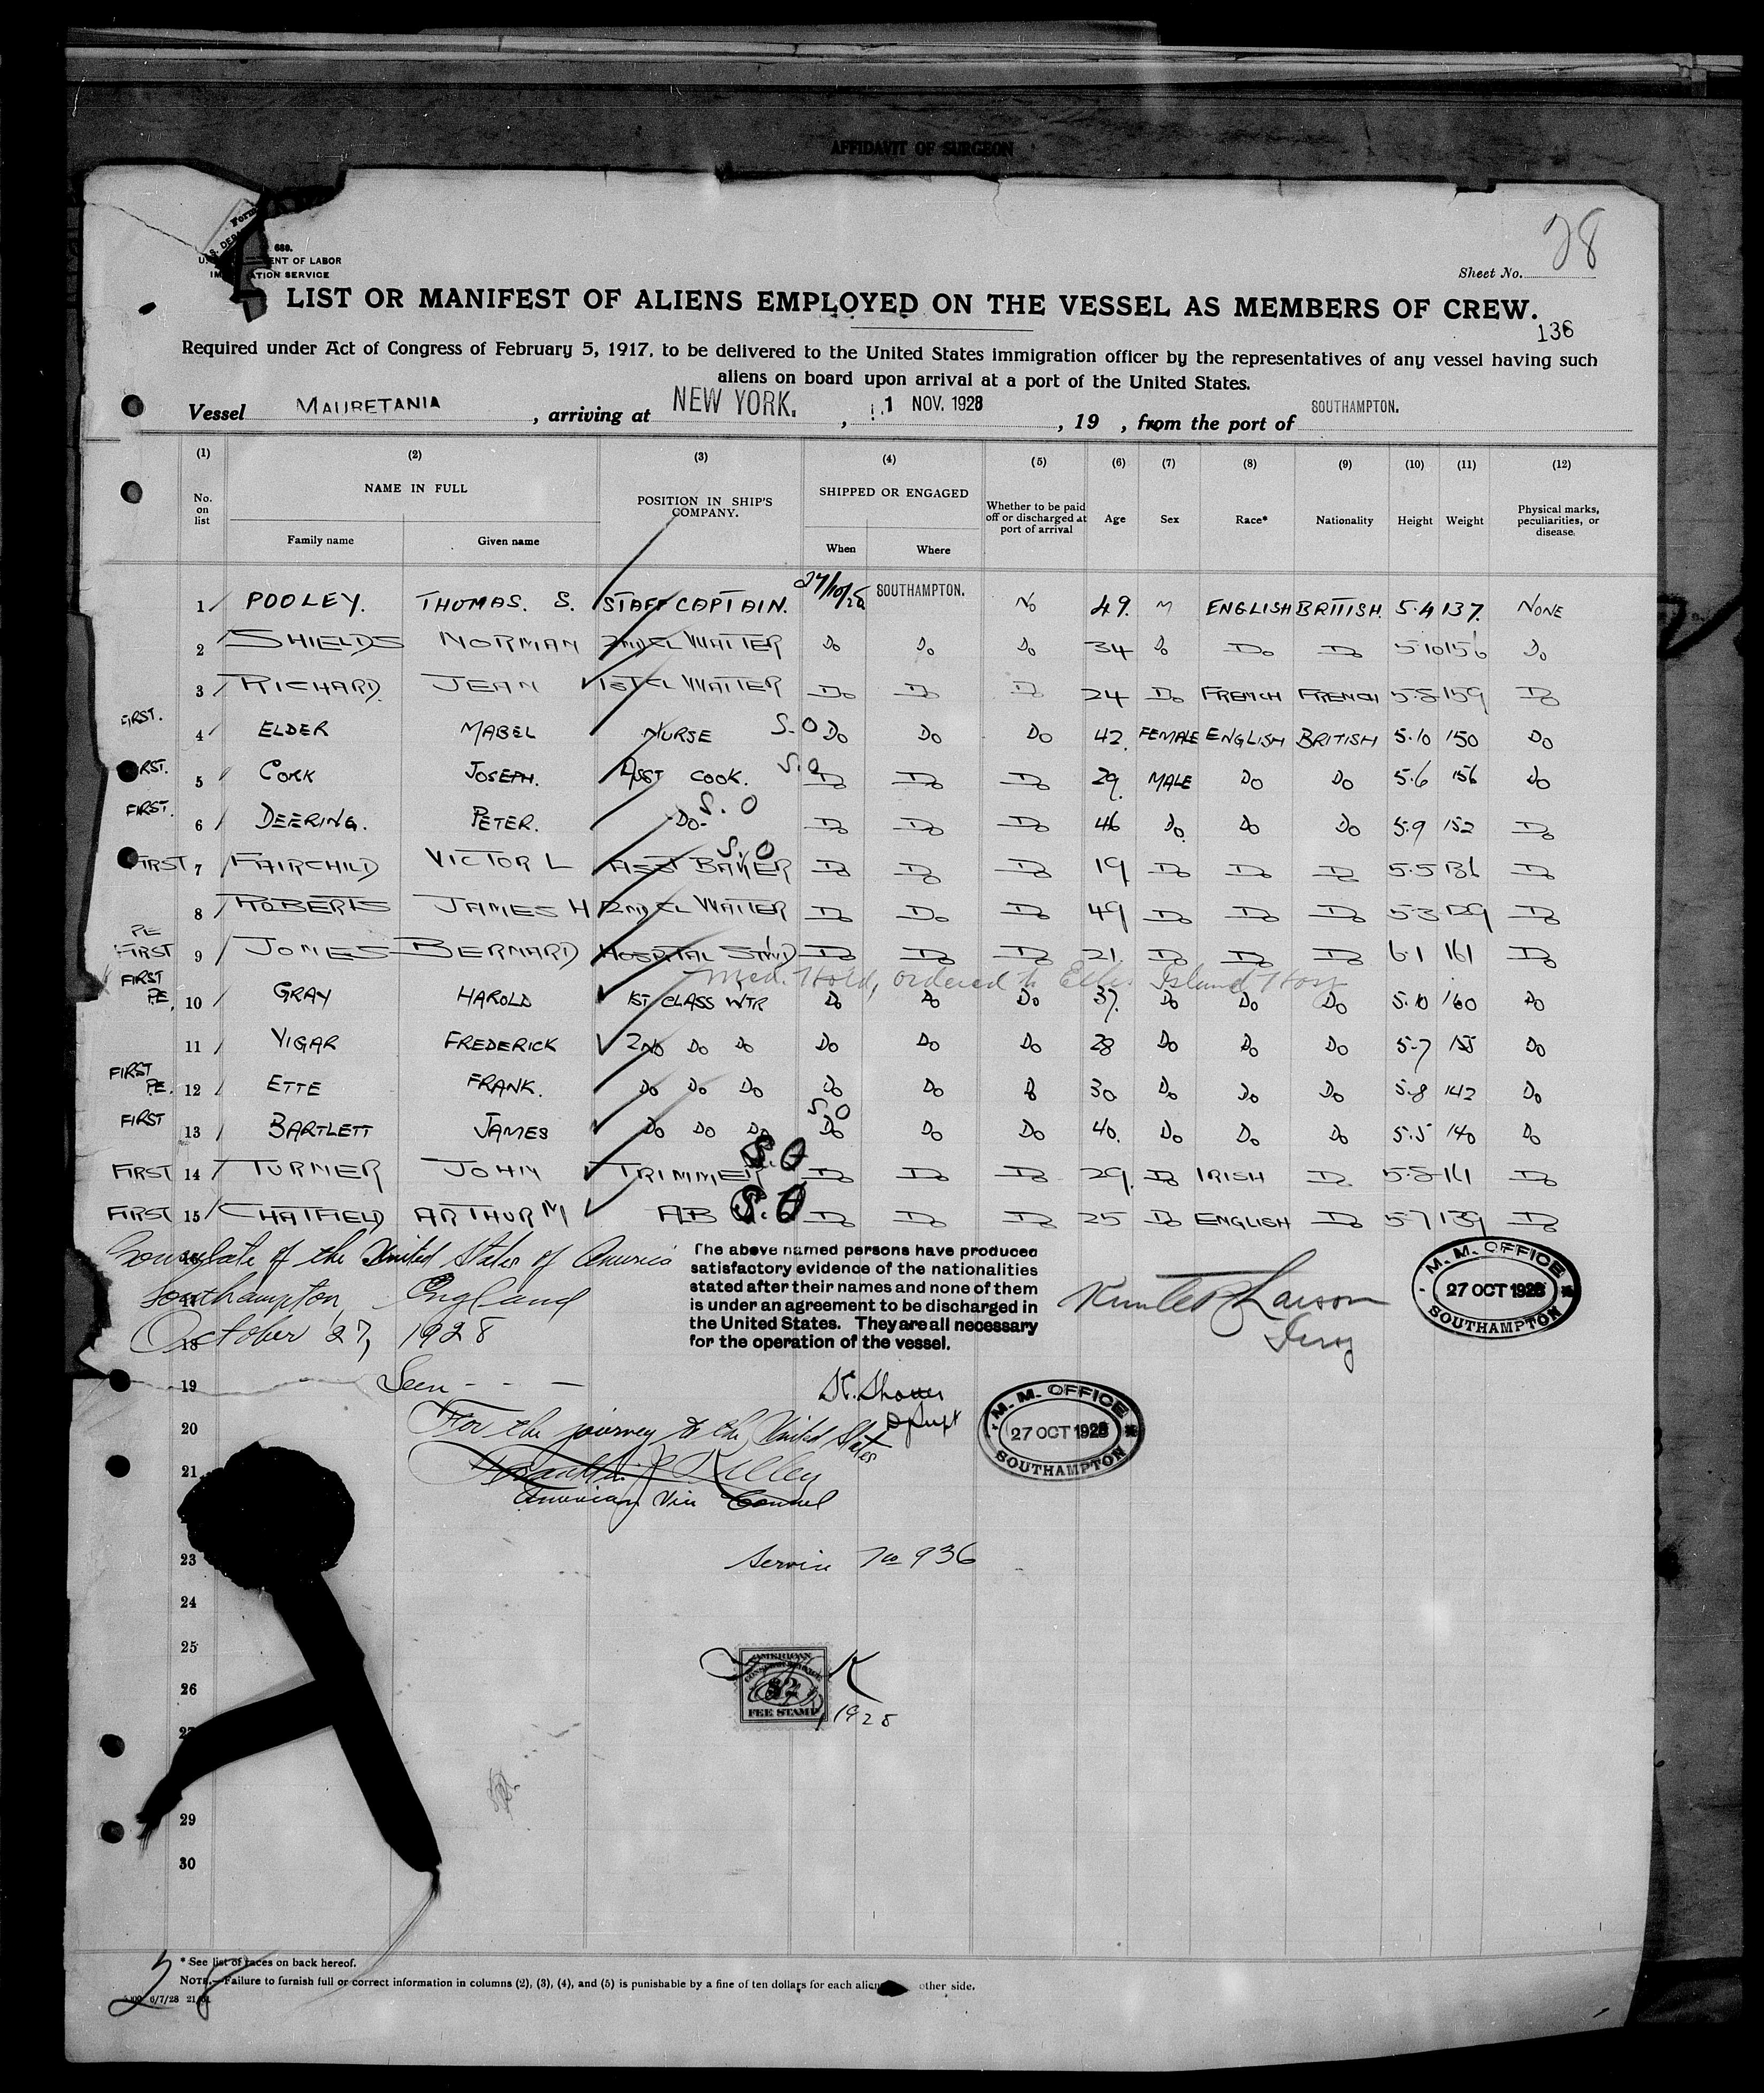 AFFIDAVIT OF SURGEON
28
Form
S. DEPA
689.
U. ENT OF LABOR
IM ATION SERVICE
Sheet No.
LIST OR MANIFEST OF ALIENS EMPLOYED ON THE VESSEL AS MEMBERS OF CREW.
136
Required under Act of Congress of February 5, 1917, to be delivered to the United States immigration officer by the representatives of any vessel having such
aliens on board upon arrival at a port of the United States.
Vessel MAURETANIA, arriving at NEW YORK., 1 NOV. 1928, 19 , from the port of SOUTHAMPTON.
(1) (2) (3) (4) (5) (6) (7) (8) (9) (10) (11) (12)
No. on list NAME IN FULL Family name Given name POSITION IN SHIP'S COMPANY. SHIPPED OR ENGAGED When Where Whether to be paid off or discharged at port of arrival Age Sex Race* Nationality Height Weight Physical marks, peculiarities, or disease.
1 POOLEY. THOMAS. S. STAFF CAPTAIN. 27/10/28 SOUTHAMPTON. No 49. M ENGLISH BRITISH. 5.4 137. NONE
2 SHIELDS NORMAN 2ND CL WAITER Do Do Do 34 Do Do Do 5.10 156 Do
3 RICHARD. JEAN 1ST CL WAITER Do Do Do 24 Do FRENCH FRENCH 5.8 159 Do
FIRST. 4 ELDER MABEL NURSE S.O Do Do Do 42. FEMALE ENGLISH BRITISH 5.10 150 Do
FIRST. 5 CORK JOSEPH. ASST COOK. S.O Do Do Do 29. MALE Do Do 5.6 156 Do
FIRST. 6 DEERING. PETER. Do- S.O Do Do Do 46 Do. Do Do 5.9 152 Do
FIRST 7 FAIRCHILD VICTOR L ASST BAKER S.O Do Do Do 19 Do Do Do 5.5 136 Do
8 ROBERTS JAMES H 2ND CL WAITER Do Do Do 49 Do Do Do 5.3 129 Do
PE FIRST 9 JONES BERNARD HOSPITAL STWD Do Do Do 21. Do Do Do 6.1 161 Do
Med. Hold, ordered to Ellis Island Hosp
FIRST PE. 10 GRAY HAROLD 1ST CLASS WTR Do Do Do 37. Do Do Do 5.10 160 Do
11 VIGAR FREDERICK 2ND Do Do Do Do Do 28 Do Do Do 5-7 155 Do
FIRST PE. 12 ETTE FRANK. Do Do Do Do Do Do 30 Do Do Do 5.8 142 Do
FIRST 13 BARTLETT JAMES Do Do Do S.O Do Do Do 40. Do Do Do 5.5 140 Do
FIRST 14 TURNER JOHN TRIMMER S.O Do Do Do 29. Do IRISH Do 5.8 161 Do
FIRST 15 CHATFIELD ARTHUR M AB S.O Do Do Do 25 Do ENGLISH Do 5.7 139 Do
Consulate of the United States of America
Southampton, England
October 27, 1928
18
The above named persons have produced
satisfactory evidence of the nationalities
stated after their names and none of them
is under an agreement to be discharged in
the United States. They are all necessary
for the operation of the vessel.
M. M. OFFICE
27 OCT 1928
SOUTHAMPTON
19 Seen - - -
20 For the journey to the United States
M. M. OFFICE
27 OCT 1928
SOUTHAMPTON
21
American Vice Consul
23 Service No 936
24
25
26
AMERICAN
CONSULAR SERVICE
$2
FEE STAMP
K
1928
29
30
* See list of races on back hereof.
NOTE.—Failure to furnish full or correct information in columns (2), (3), (4), and (5) is punishable by a fine of ten dollars for each alien other side.
6/7/28
28